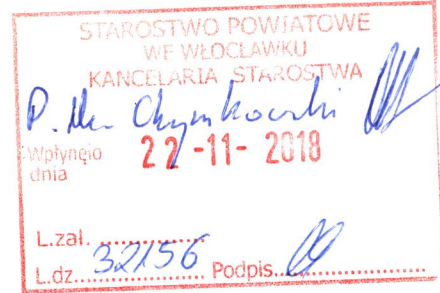 STAROSTWO POWIATOWE
WE WŁOCŁAWKU
KANCELARIA STAROSTWA
P.
Wpłynęło
dnia 22 -11- 2018
L.zał. ....................
L.dz. 32156 Podpis............................